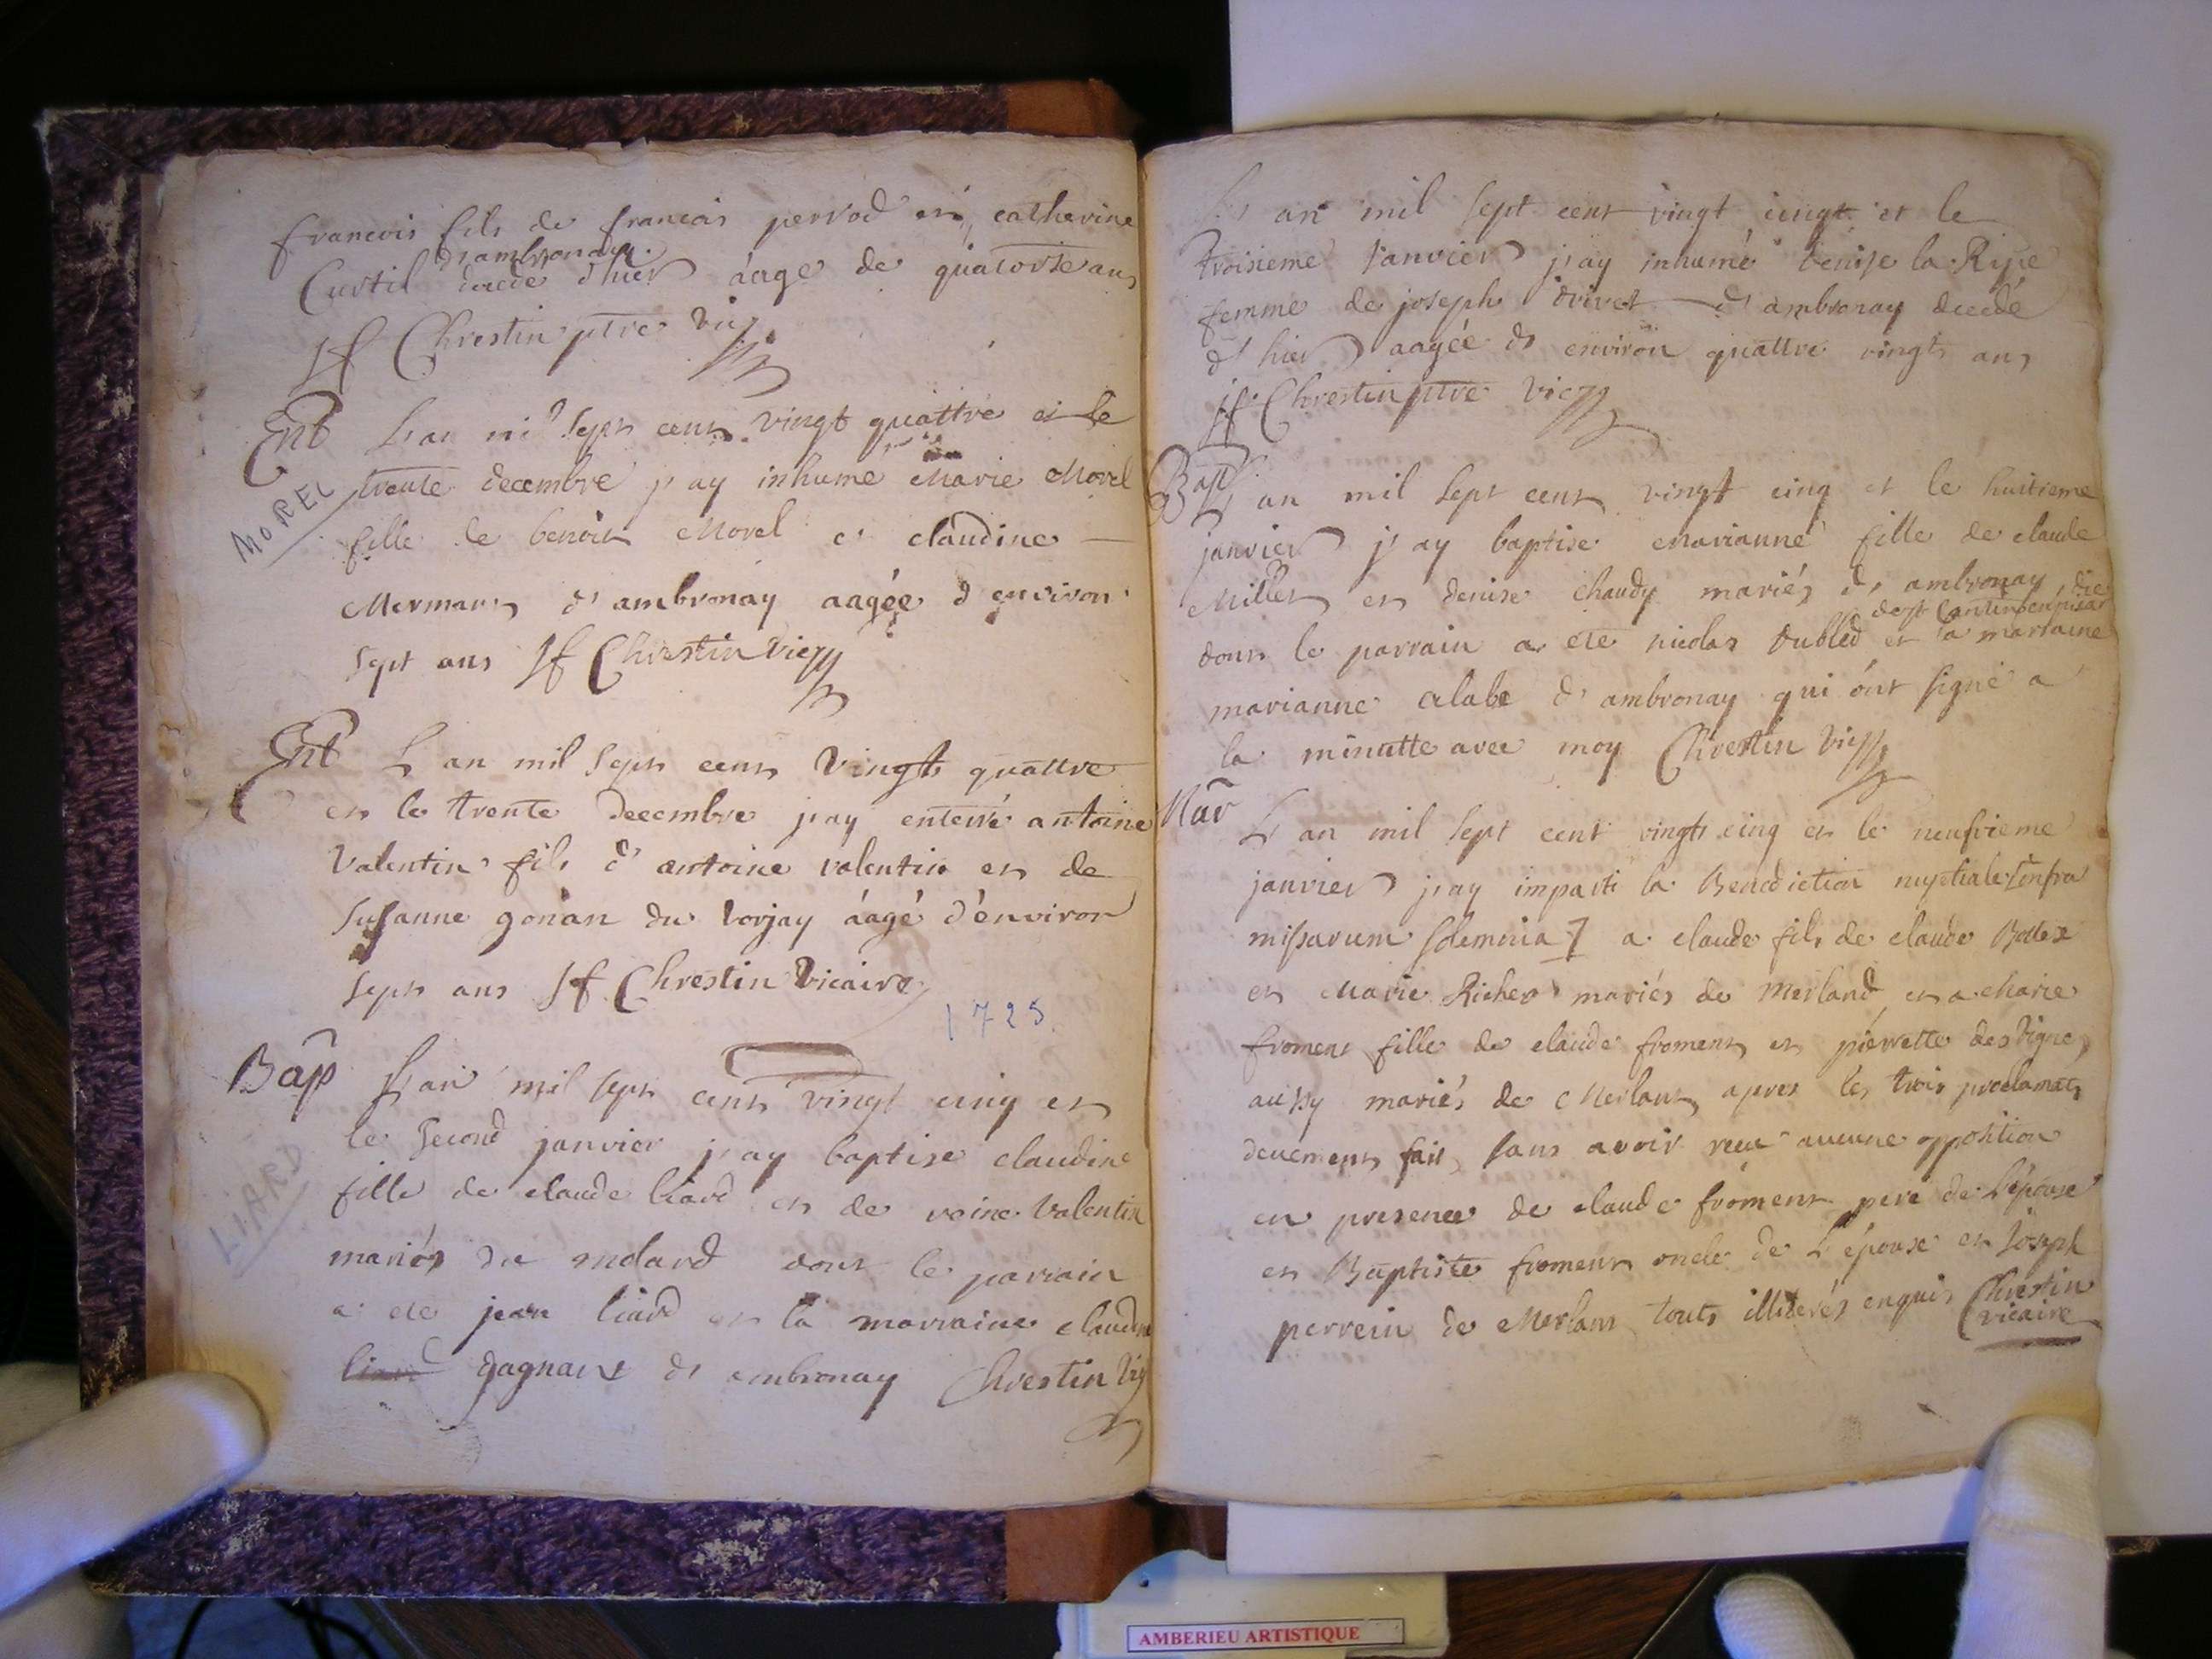 francois fils de francois perrod et catherine
d'ambronay
Curtil decede d'hier áage de quatorse ans
Jf Chrestin ptre vic
Ent L'an mil sept cent vingt quattre et le
trente decembre j'ay inhumé Marie Morel
MOREL
fille de benoit Morel et claudine
Mermant d'ambronay aagée d'environ
sept ans Jf Chrestin vic
Ent L'an mil sept cent vingt quattre
et le trente decembre j'ay enterré antoine
Valentin fils d'antoine valentin et de
Susanne gonan du vorjay áagé d'environ
sept ans Jf Chrestin vicaire
1725
Bap L'an mil sept cent vingt cinq et
le second janvier j'ay baptise claudine
LIARD
fille de claude liard et de reine Valentin
mariés du molard dont le parrain
a ete jean liard et la marraine claudine
liard gagneux d'ambronay Chrestin vic
L'an mil sept cent vingt cinqt et le
troisieme janvier j'ay inhumé denise la Ripe
femme de joseph drivet d'ambronay decedé
d'hier aagée d'environ quattre vingts ans
Jf Chrestin ptre vic
Bap L'an mil sept cent vingt cinq et le huitieme
janvier j'ay baptise marianne fille de claude
Millet et denise chaudy mariés d'ambronay
dont le parrain a ete nicolas dubled et la marraine
marianne alabe d'ambronay qui ont signé a
la minutte avec moy Chrestin vic
Mar L'an mil sept cent vingt cinq et le neufvieme
janvier j'ay imparti la Benediction nuptiale [infra
missarum solemnia] a claude fils de claude Bollex
et Marie Richer mariés de Merland et a Marie
froment fille de claude froment et pierrette desvignes
aussy mariés de Merlant apres les trois proclamats
deuement fait, sans avoir receu aucune opposition
en presence de claude froment pere de L'épouse
et Baptiste froment oncle de L'épouse et joseph
perrein de Merlant touts illiterés enquis Chrestin
vicaire
AMBERIEU ARTISTIQUE